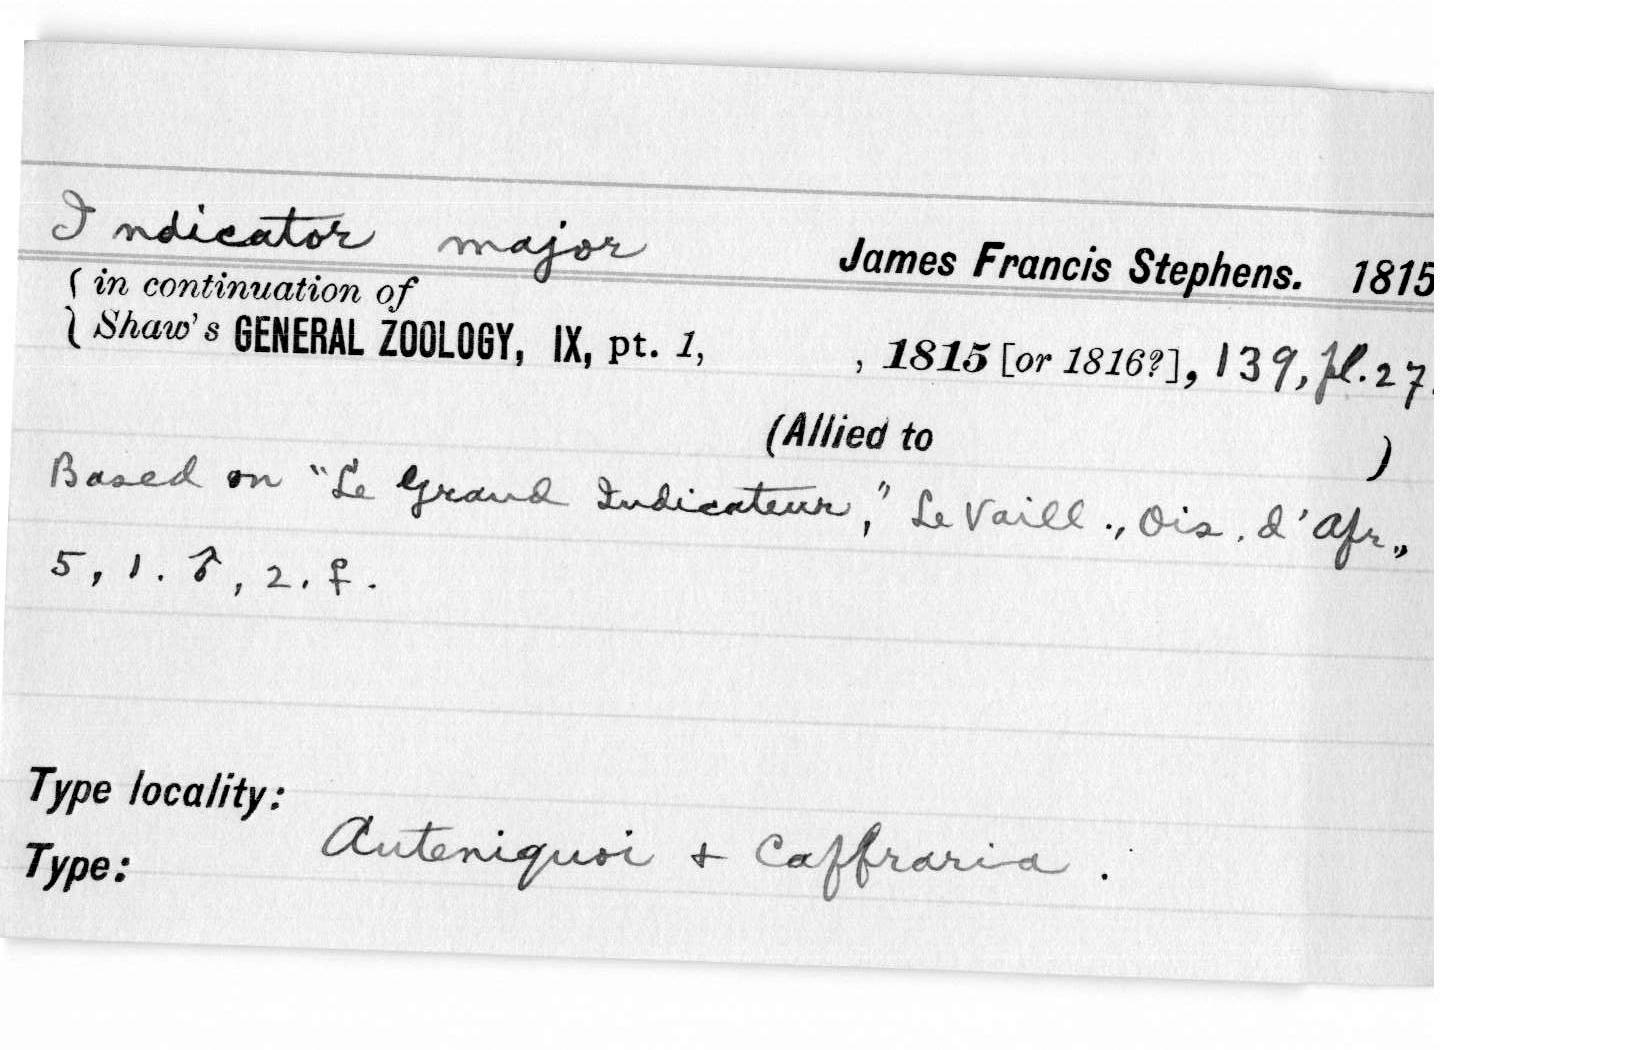 Indicator major James Francis Stephens. 1815
( in continuation of
Shaw's GENERAL ZOOLOGY, IX, pt. 1, , 1815 [or 1816?], 139, pl. 27.
(Allied to )
Based on "Le Grand Indicateur," Le Vaill., Ois. d'Afr.,
5, 1. ♂, 2. ♀.
Type locality:
Auteniquoi + Caffraria.
Type: